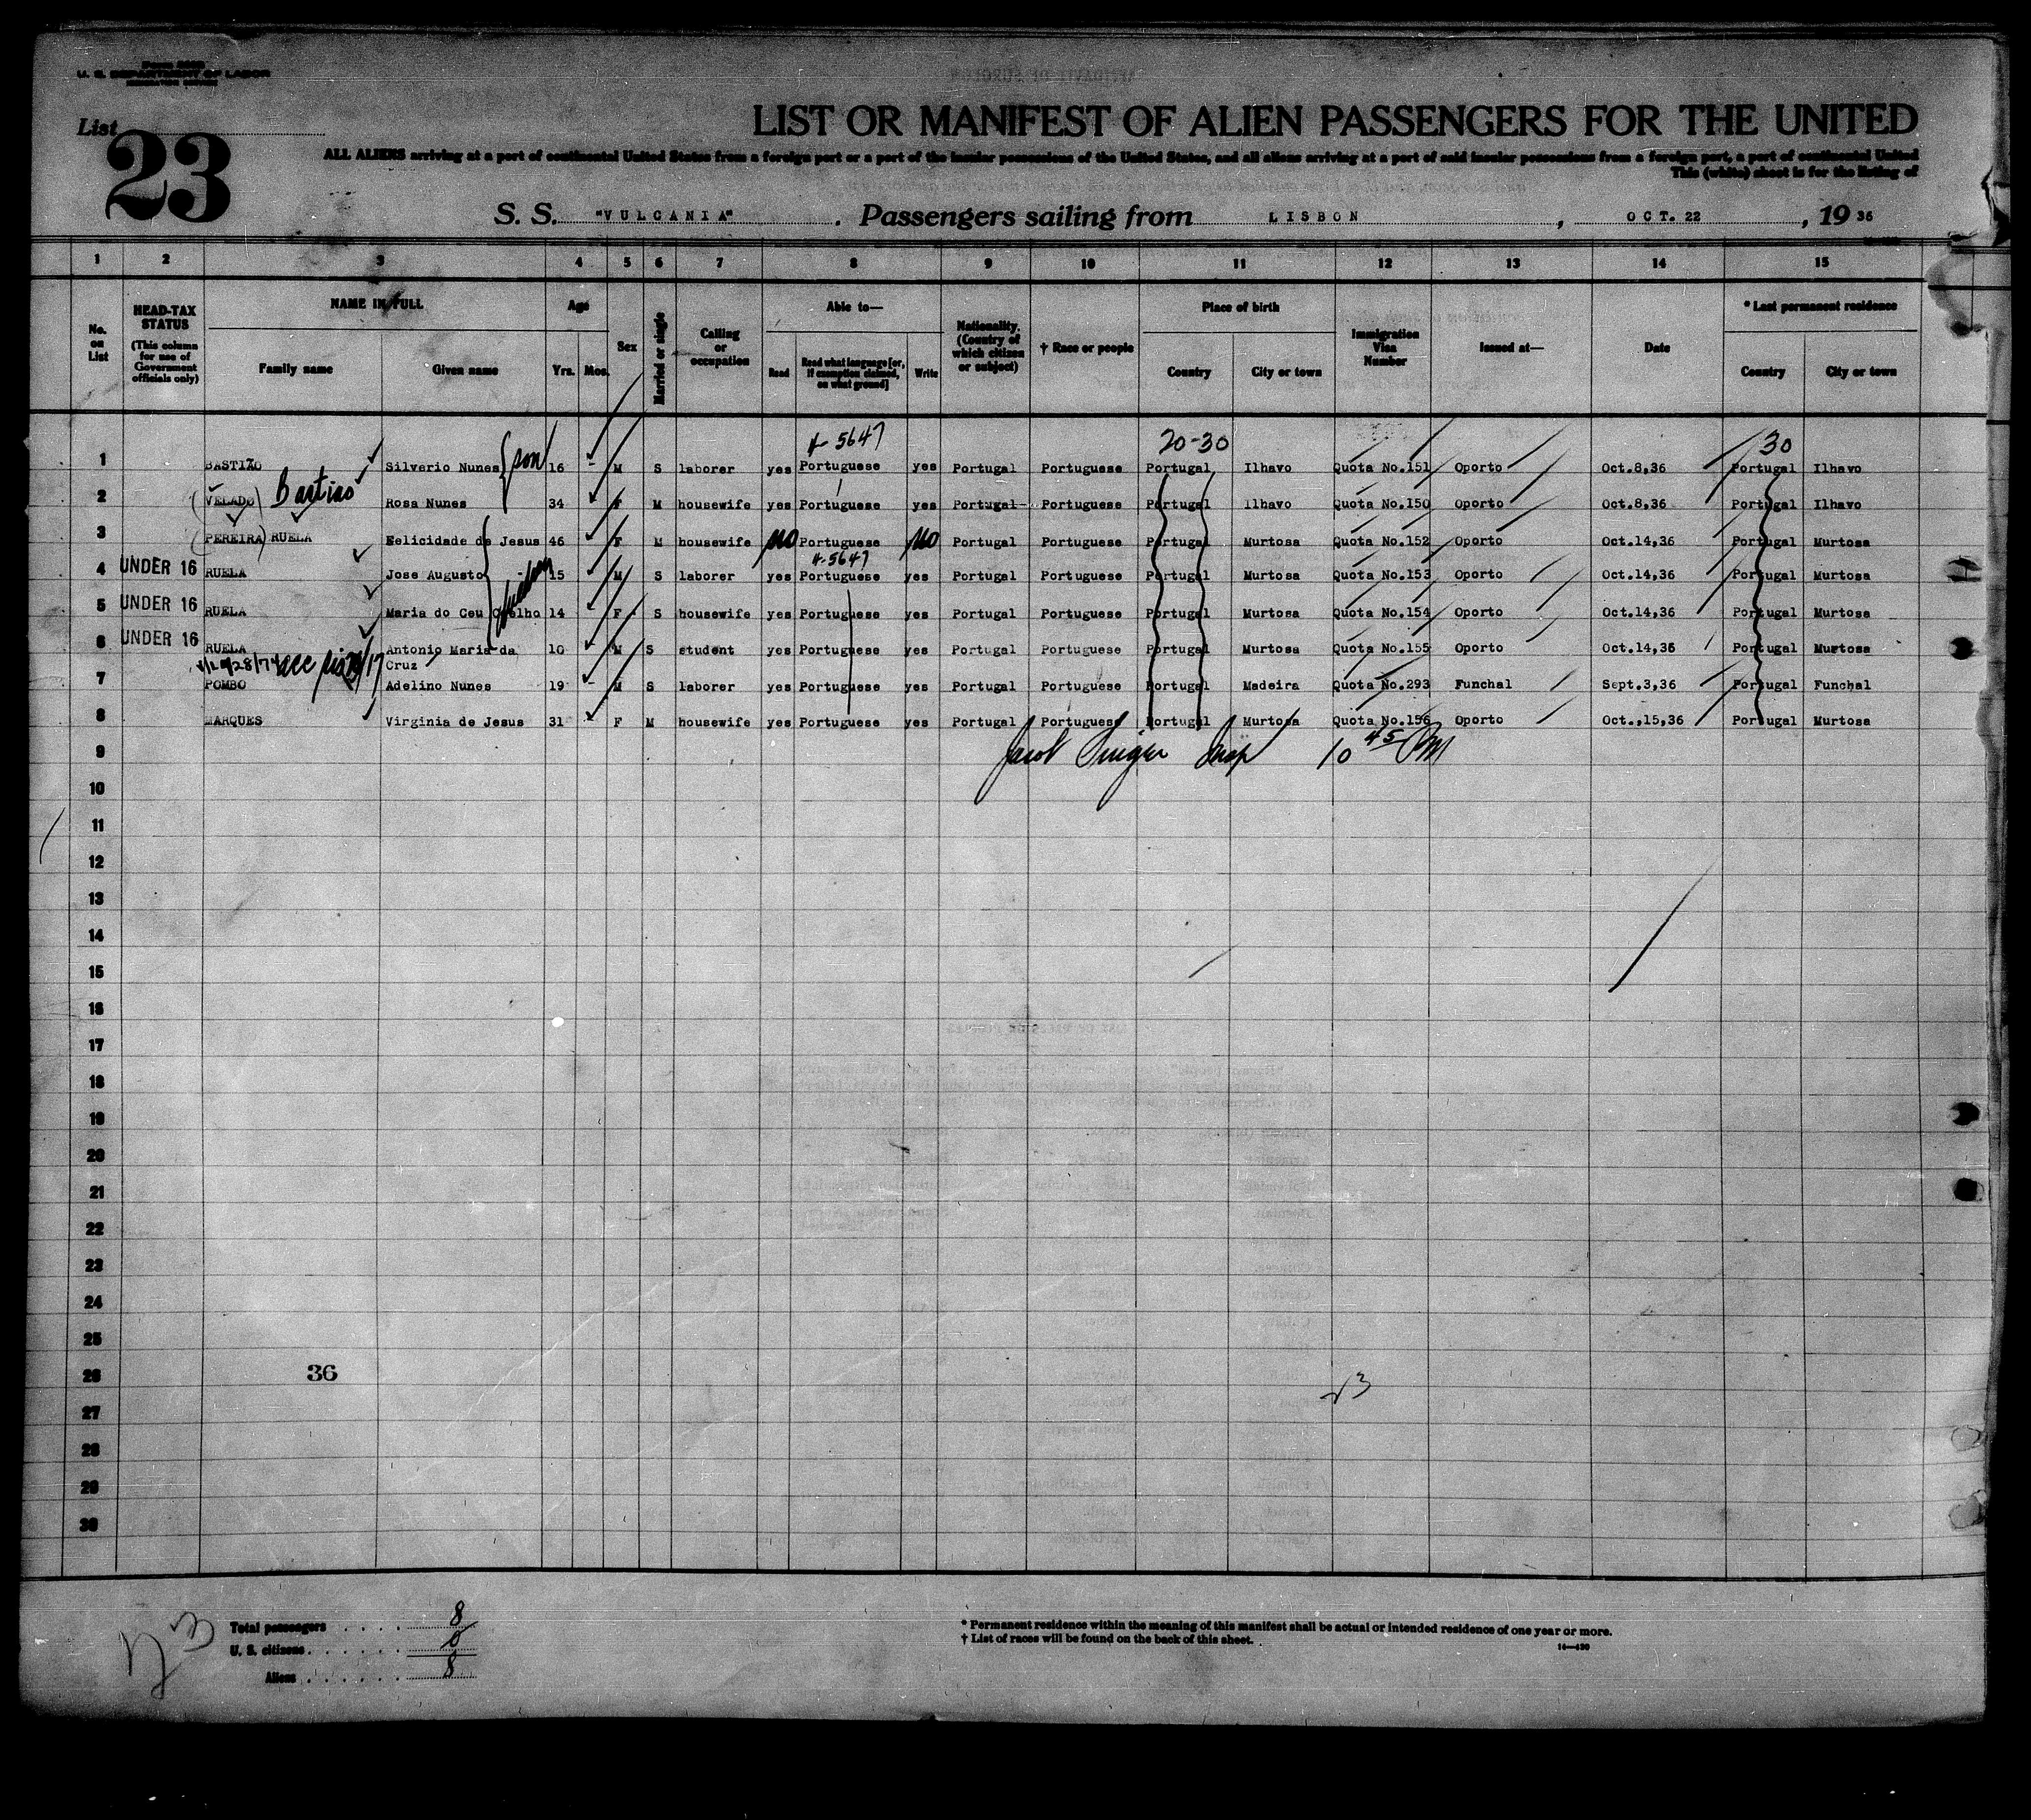 Form 500B
U. S. DEPARTMENT OF LABOR
List
23
LIST OR MANIFEST OF ALIEN PASSENGERS FOR THE UNITED
ALL ALIENS arriving at a port of continental United States from a foreign port or a port of the insular possessions of the United States, and all aliens arriving at a port of said insular possessions from a foreign port, a port of continental United
This (white) sheet is for the listing of
S. S. "VULCANIA" , Passengers sailing from LISBON , OCT. 22 , 19 36
1 2 3 4 5 6 7 8 9 10 11 12 13 14 15
No. on List
HEAD-TAX STATUS (This column for use of Government officials only)
NAME IN FULL
Family name Given name
Age
Yrs. Mos.
Sex
Married or single
Calling or occupation
Able to—
Read Read what language [or, if exemption claimed, on what ground] Write
Nationality. (Country of which citizen or subject)
† Race or people
Place of birth
Country City or town
Immigration Visa Number
Issued at—
Date
* Last permanent residence
Country City or town
4-5647 20-30 30
1 BASTIÃO Silverio Nunes son 16 - M S laborer yes Portuguese yes Portugal Portuguese Portugal Ilhavo Quota No.151 Oporto Oct.8,36 Portugal Ilhavo
2 (VELADO) Bastiao Rosa Nunes 34 F M housewife yes Portuguese yes Portugal Portuguese Portugal Ilhavo Quota No.150 Oporto Oct.8,36 Portugal Ilhavo
3 (PEREIRA) RUELA Felicidade de Jesus 46 F M housewife no Portuguese no Portugal Portuguese Portugal Murtosa Quota No.152 Oporto Oct.14,36 Portugal Murtosa
4-5647
4 UNDER 16 RUELA Jose Augusto 15 M S laborer yes Portuguese yes Portugal Portuguese Portugal Murtosa Quota No.153 Oporto Oct.14,36 Portugal Murtosa
children
5 UNDER 16 RUELA Maria do Ceu Coelho 14 F S housewife yes Portuguese yes Portugal Portuguese Portugal Murtosa Quota No.154 Oporto Oct.14,36 Portugal Murtosa
6 UNDER 16 RUELA Antonio Maria da Cruz 10 M S student yes Portuguese yes Portugal Portuguese Portugal Murtosa Quota No.155 Oporto Oct.14,36 Portugal Murtosa
7 POMBO Adelino Nunes 19 - M S laborer yes Portuguese yes Portugal Portuguese Portugal Madeira Quota No.293 Funchal Sept.3,36 Portugal Funchal
8 MARQUES Virginia de Jesus 31 F M housewife yes Portuguese yes Portugal Portuguese Portugal Murtosa Quota No.156 Oporto Oct.,15,36 Portugal Murtosa
9 Insp 10 45 PM
10
11
12
13
14
15
16
17
18
19
20
21
22
23
24
25
26 36
27
28
29
30
23
Total passengers . . . . 8
U. S. citizens . . . . . . 0
Aliens . . . . . . 8
* Permanent residence within the meaning of this manifest shall be actual or intended residence of one year or more.
† List of races will be found on the back of this sheet.
14—430